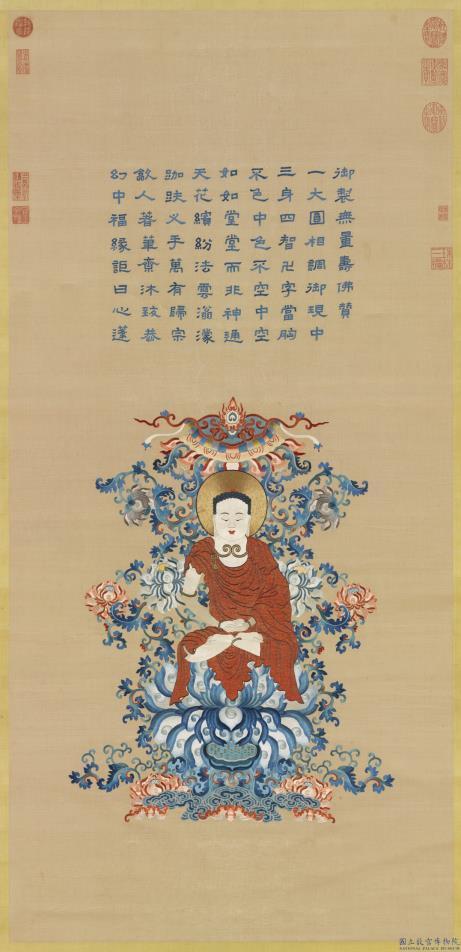 御製無量壽佛贊
一大圓相調御現中
三身四智卍字當胸
不色中色不空中空
如如堂堂而非神通
天花繽紛法雲滃濛
跏趺叉手萬有歸宗
人著筆齋沐致恭
幻中福緣詎曰心蓬
國立故宮博物院
NATIONAL PALACE MUSEUM